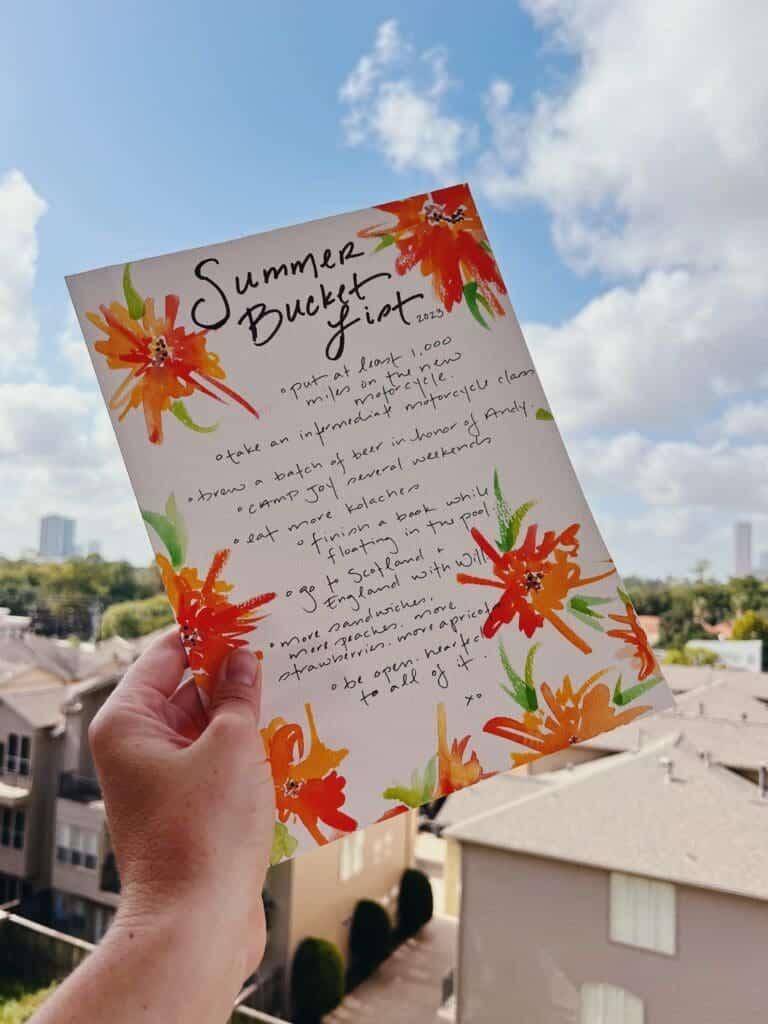 Summer
Bucket
List 2023
• put at least 1,000
miles on the new
motorcycle.
• take an intermediate motorcycle class
• brew a batch of beer in honor of Andy.
• CAMP Joy several weekends
• eat more kolaches
• finish a book while
floating in the pool.
• go to Scotland +
England with Will
• more sandwiches.
more peaches. more
strawberries. more apricots
• be open-hearted
to all of it.
xo